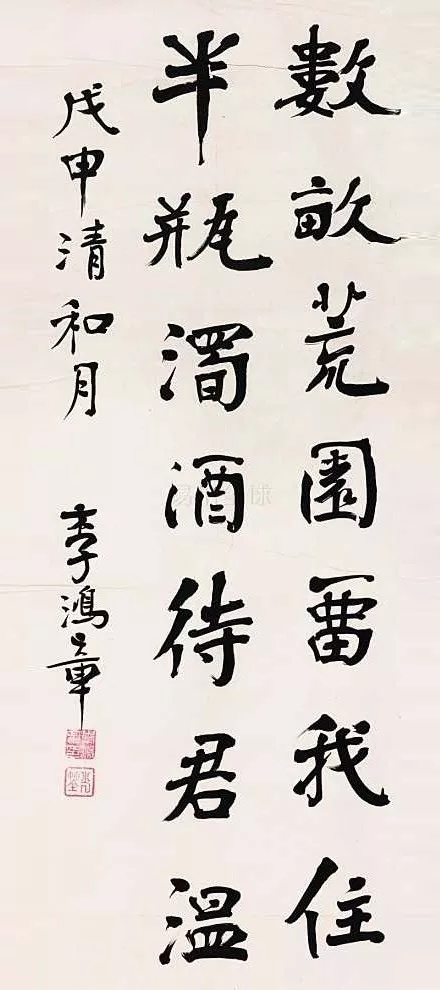 數畝荒園畱我住
半瓶濁酒待君温
戊申清和月 李鴻章